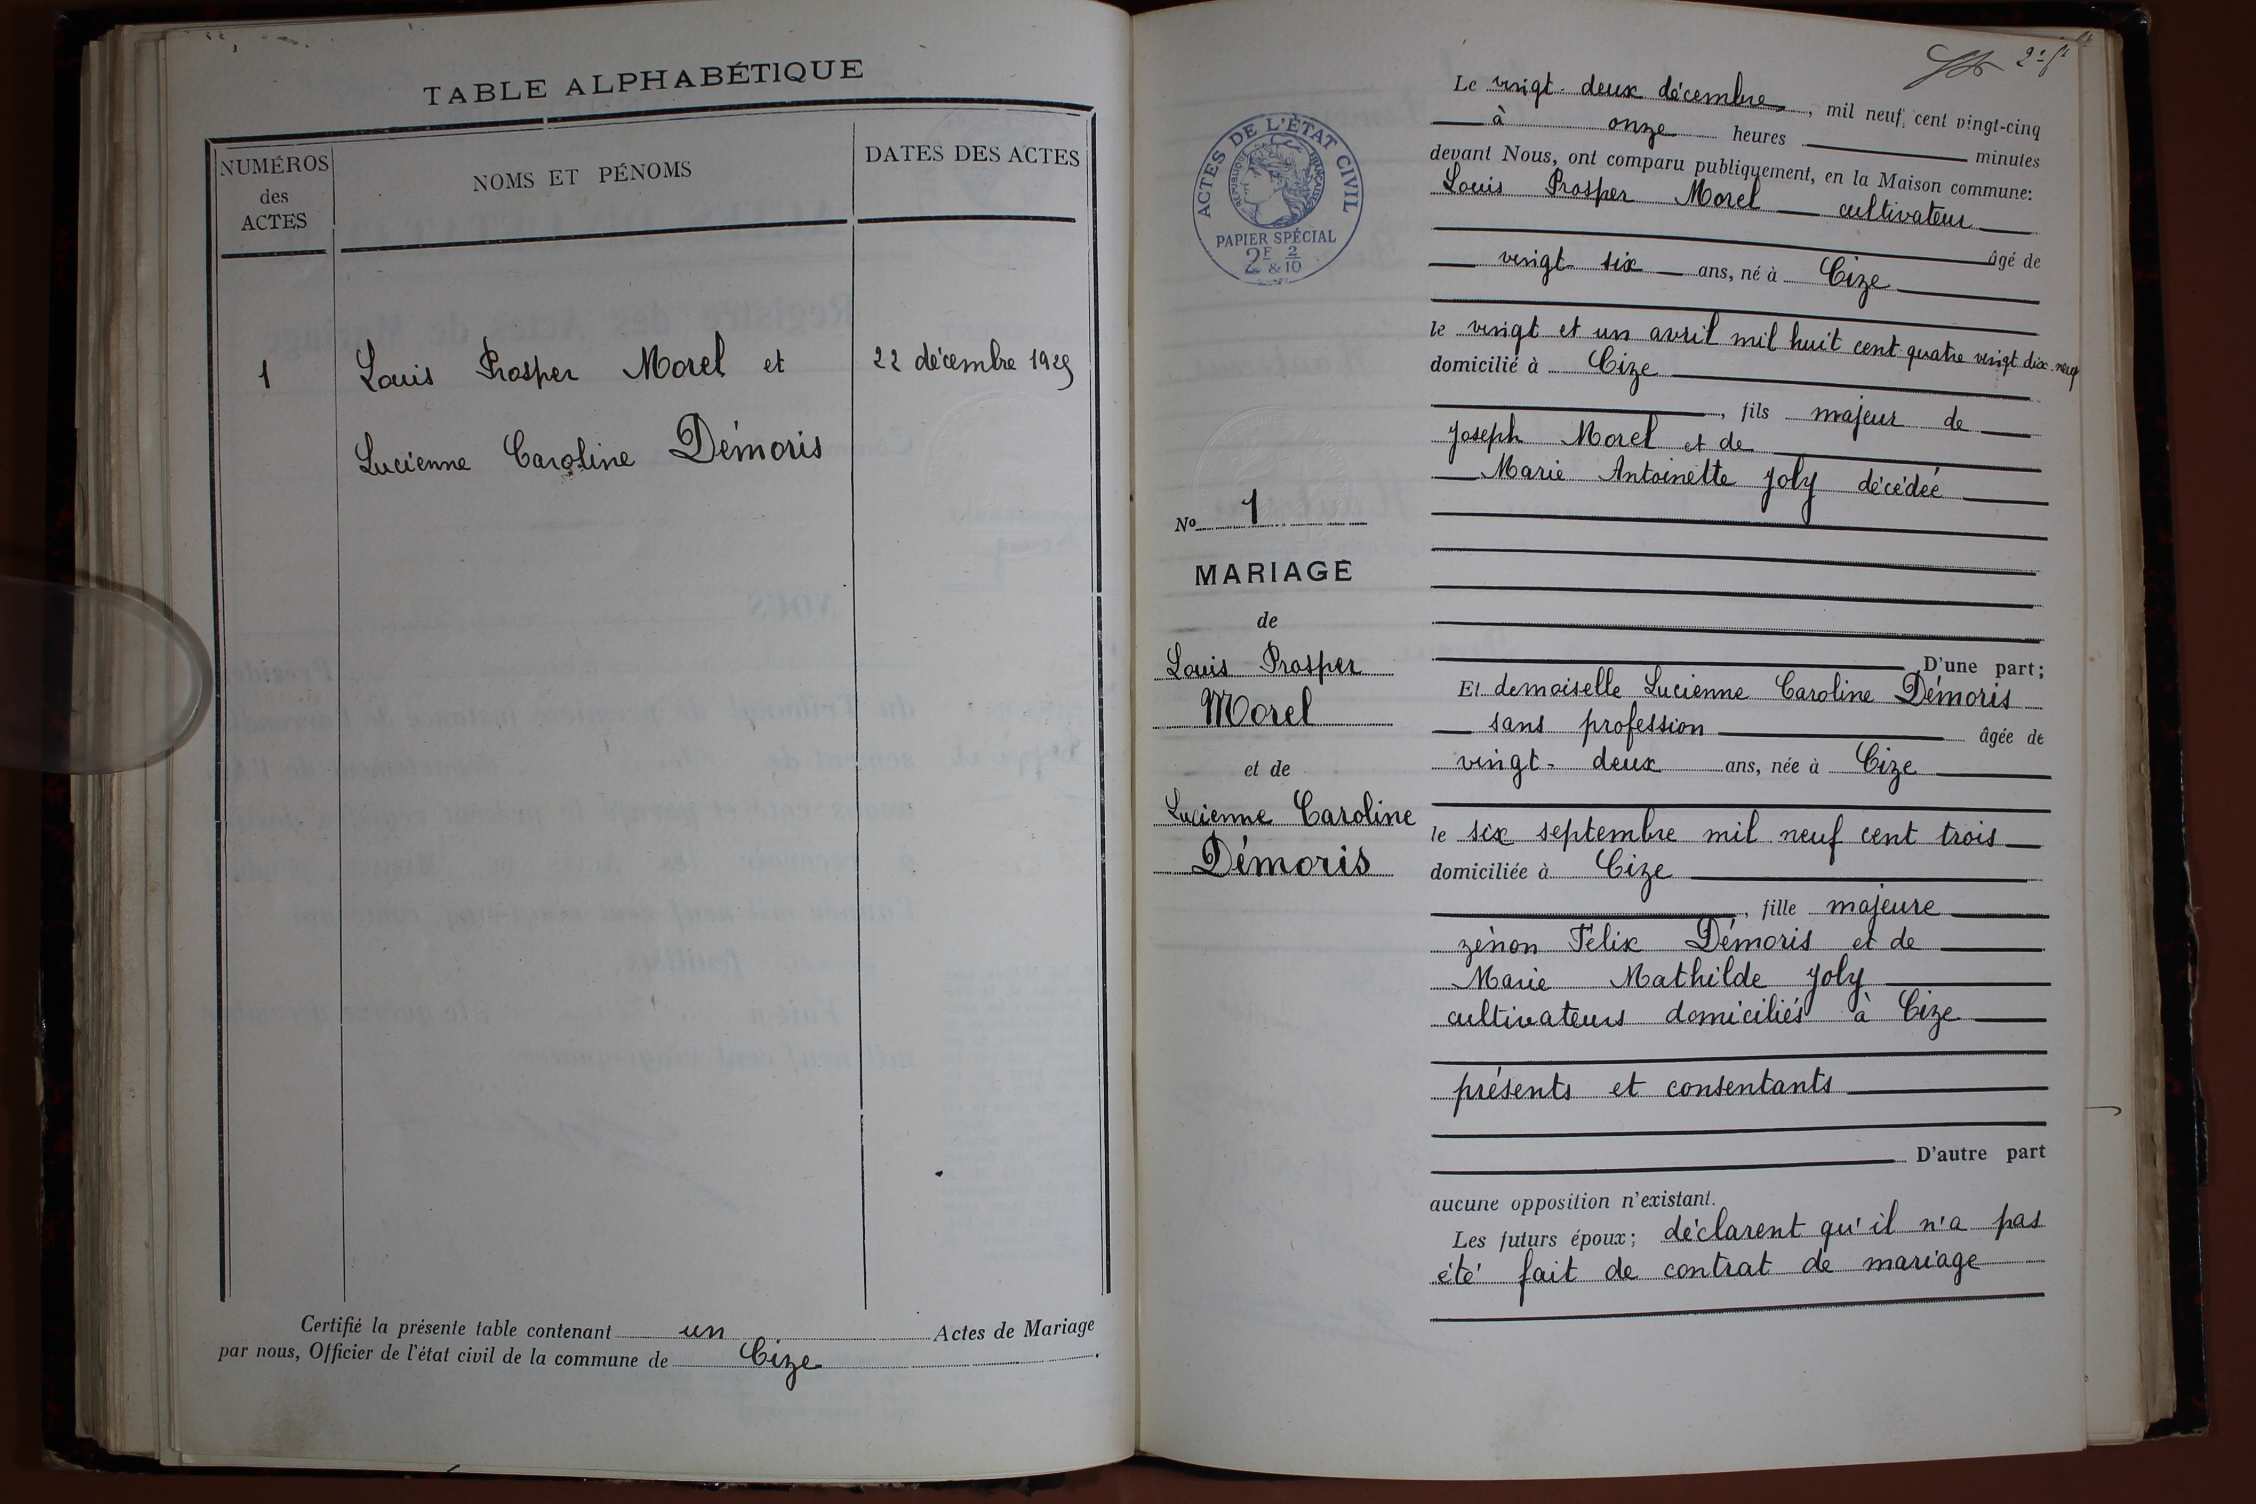 TABLE ALPHABÉTIQUE
NUMÉROS
des
ACTES
NOMS ET PÉNOMS
DATES DES ACTES
1
Louis Prosper Morel et
22 décembre 1925
Lucienne Caroline Démoris
Certifié la présente table contenant un Actes de Mariage
par nous, Officier de l'état civil de la commune de Cize.
ACTES DE L'ÉTAT CIVIL
RÉPUBLIQUE FRANÇAISE
PAPIER SPÉCIAL
2F & 2/10
No 1
MARIAGE
de
Louis Prosper
Morel
et de
Lucienne Caroline
Démoris
Le vingt-deux décembre, mil neuf cent vingt-cinq
à onze heures minutes
devant Nous, ont comparu publiquement, en la Maison commune:
Louis Prosper Morel cultivateur
âgé de
vingt six ans, né à Cize
le vingt et un avril mil huit cent quatre vingt dix-neuf
domicilié à Cize
, fils majeur de
Joseph Morel et de
Marie Antoinette Joly décédée
D'une part;
Et demoiselle Lucienne Caroline Démoris
sans profession âgée de
vingt-deux ans, née à Cize
le six septembre mil neuf cent trois
domiciliée à Cize
, fille majeure
zénon Félix Démoris et de
Marie Mathilde Joly
cultivateurs domiciliés à Cize
présents et consentants
D'autre part
aucune opposition n'existant.
Les futurs époux; déclarent qu'il n'a pas
été fait de contrat de mariage